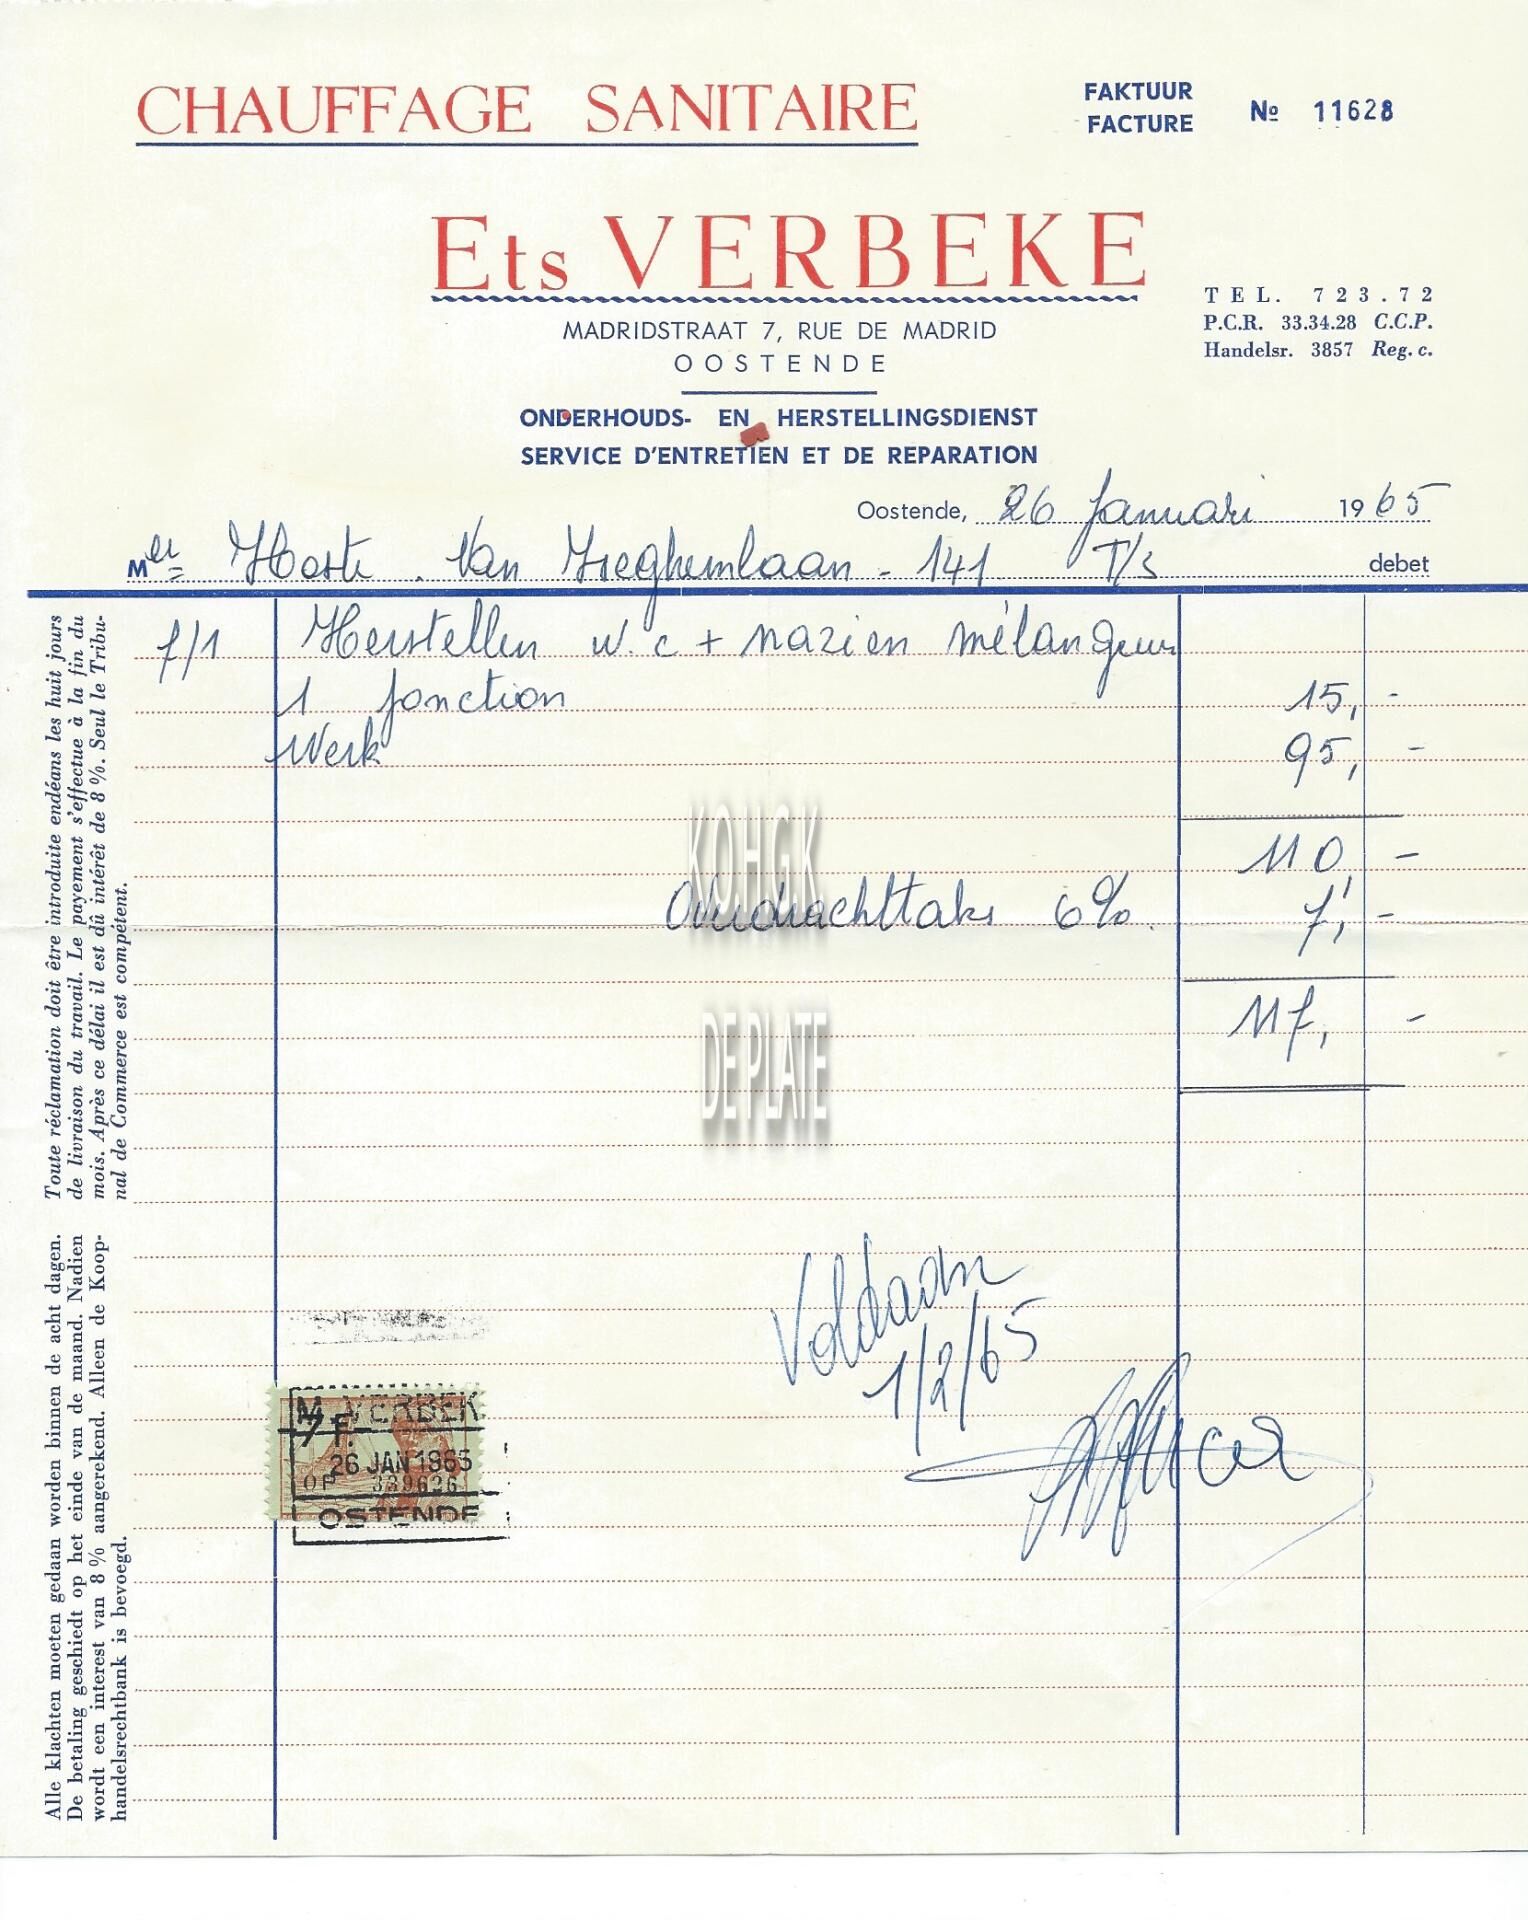 CHAUFFAGE SANITAIRE
FAKTUUR
FACTURE
No 11628
Ets VERBEKE
MADRIDSTRAAT 7, RUE DE MADRID
OOSTENDE
TEL. 723.72
P.C.R. 33.34.28 C.C.P.
Handelsr. 3857 Reg. c.
ONDERHOUDS- EN HERSTELLINGSDIENST
SERVICE D'ENTRETIEN ET DE REPARATION
Oostende, 26 Januari 1965
Mer Hoste. Van Iseghemlaan - 141 T/S debet
7/1 Herstellen w.c + nazien mélangeur
1 jonction 15,-
Werk 95,-
110,-
Overdrachttaks 6% 7,-
117,-
K.O.H.G.K.
DE PLATE
Voldaan
1/2/65
M. VERBEK
7 F.
26 JAN 1965
OP 339626
OSTENDE
Toute réclamation doit être introduite endéans les huit jours
de livraison du travail. Le payement s'effectue à la fin du
mois. Après ce délai il est dû intérêt de 8 %. Seul le Tribu-
nal de Commerce est compétent.
Alle klachten moeten gedaan worden binnen de acht dagen.
De betaling geschiedt op het einde van de maand. Nadien
wordt een interest van 8 % aangerekend. Alleen de Koop-
handelsrechtbank is bevoegd.